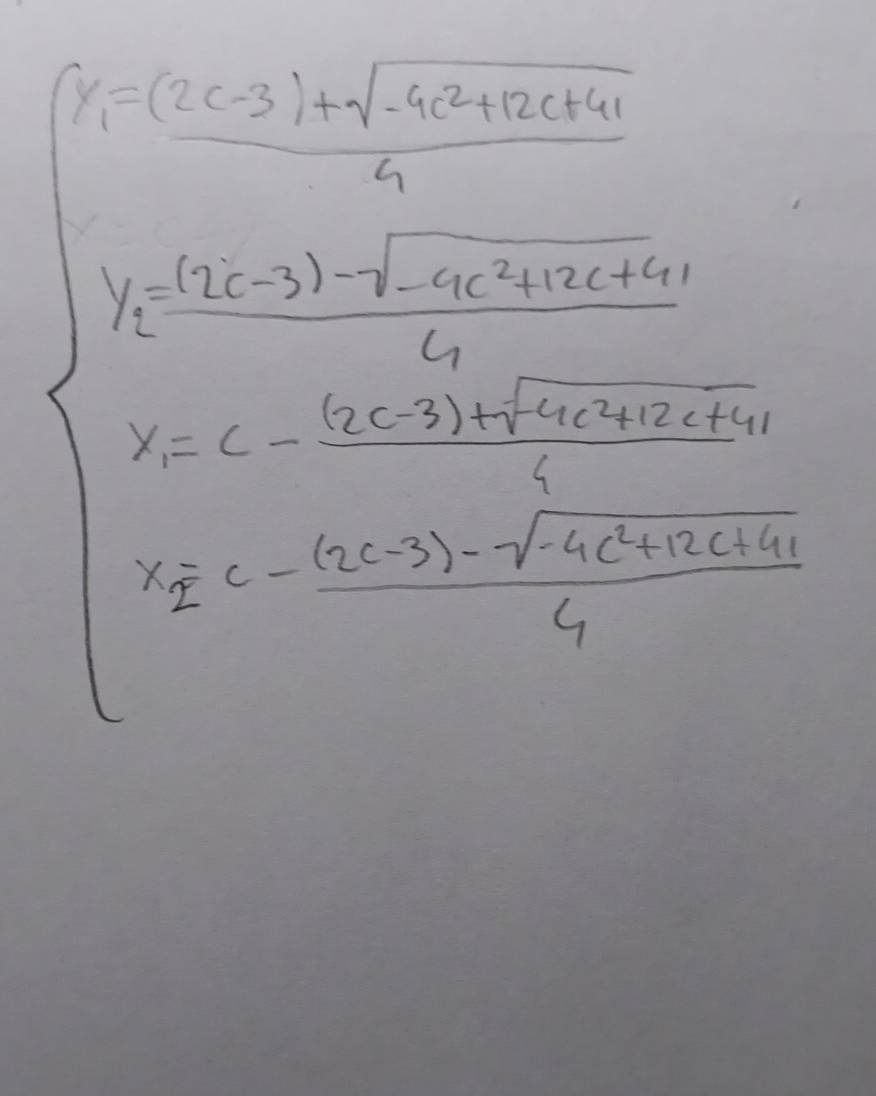 y₁ = (2c-3)+√-4c²+12c+41 / 4
y₂ = (2c-3)-√-4c²+12c+41 / 4
x₁ = c - (2c-3)+√-4c²+12c+41 / 4
x₂ = c - (2c-3)-√-4c²+12c+41 / 4